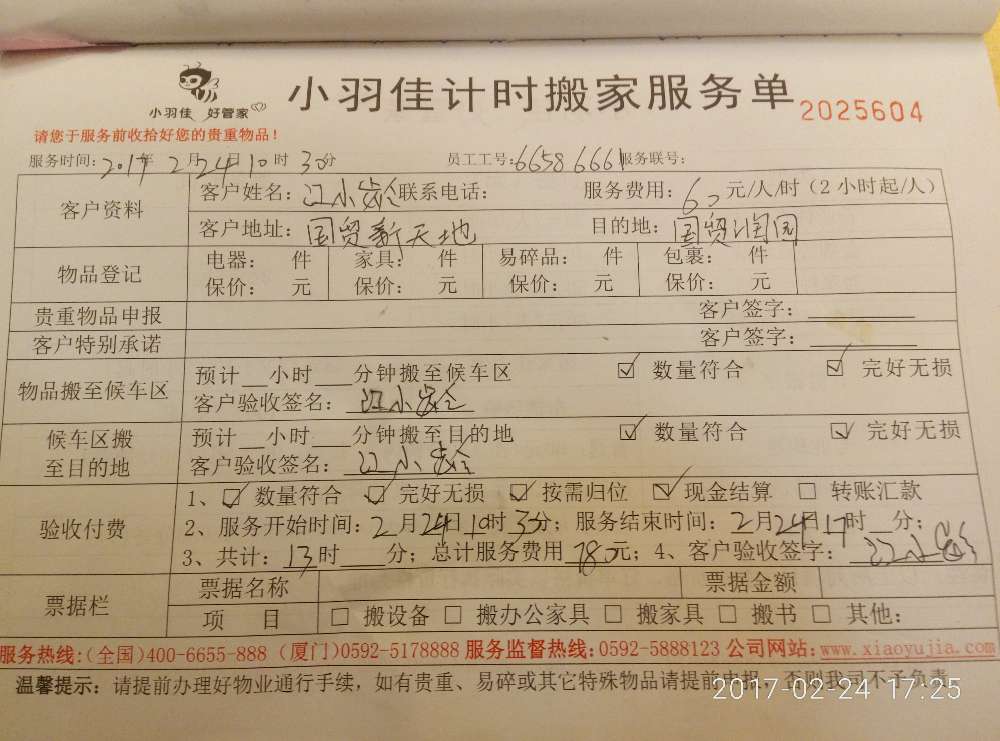 小羽佳 好管家
小羽佳计时搬家服务单 2025604
请您于服务前收拾好您的贵重物品！
服务时间：2017年2月24日10时30分 员工工号：6658 6661 服务联号：
客户资料
客户姓名：江小 联系电话： 服务费用：60元/人/时（2小时起/人）
客户地址：国贸新天地 目的地：国贸润园
物品登记
电器： 件 家具： 件 易碎品： 件 包裹： 件
保价： 元 保价： 元 保价： 元 保价： 元
贵重物品申报 客户签字：
客户特别承诺 客户签字：
物品搬至候车区
预计__小时___分钟搬至候车区 ☑ 数量符合 ☑ 完好无损
客户验收签名：江小
候车区搬至目的地
预计__小时___分钟搬至目的地 ☑ 数量符合 ☑ 完好无损
客户验收签名：江小
验收付费
1、☑ 数量符合 ☑ 完好无损 ☑ 按需归位 ☑ 现金结算 □ 转账汇款
2、服务开始时间：2月24日10时30分；服务结束时间：2月24日17时__分；
3、共计：13时____分；总计服务费用780元；4、客户验收签字：江小
票据栏
票据名称 票据金额
项 目 □ 搬设备 □ 搬办公家具 □ 搬家具 □ 搬书 □ 其他：
服务热线：(全国)400-6655-888 (厦门)0592-5178888 服务监督热线：0592-5888123 公司网站：www.xiaoyujia.com
温馨提示：请提前办理好物业通行手续，如有贵重、易碎或其它特殊物品请提前申报，否则我司不予负责。
2017-02-24 17:25